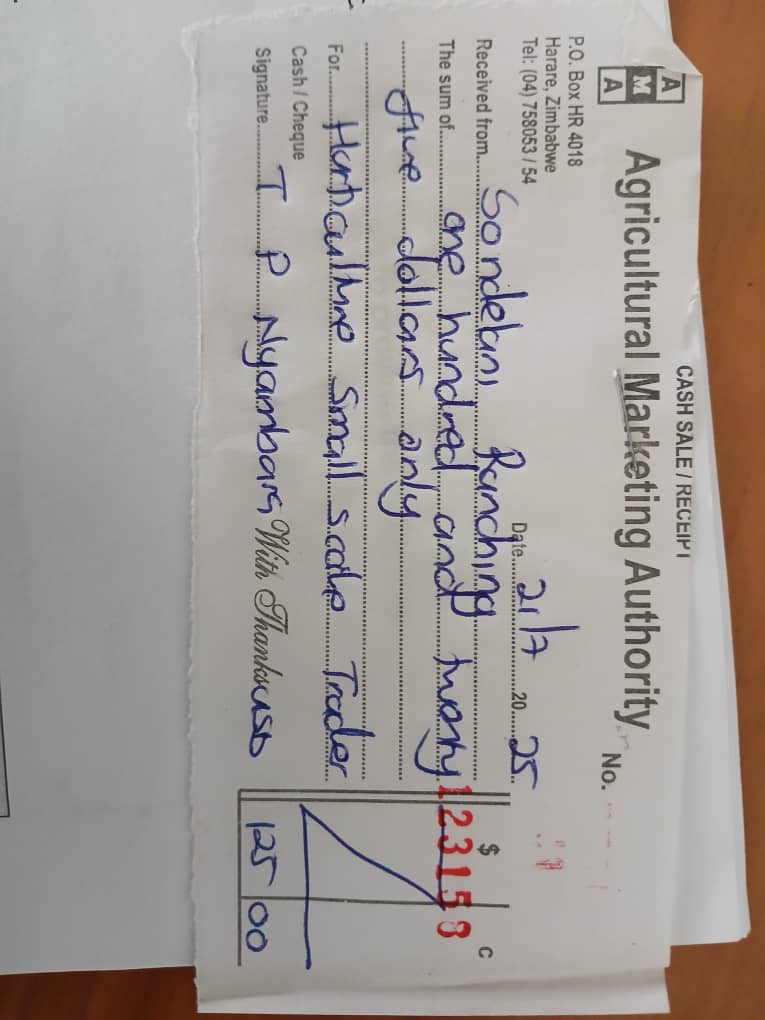 CASH SALE / RECEIPT
A
M
A
Agricultural Marketing Authority
P.O. Box HR 4018
Harare, Zimbabwe
Tel: (04) 758053 / 54
No.
Date 21/7 20 25
Received from Sondelani Ranching
The sum of one hundred and twenty
five dollars only
For Horticulture Small scale Trader
Cash / Cheque
Signature T P Nyambara With Thanks USD
$ C
123158
125 00